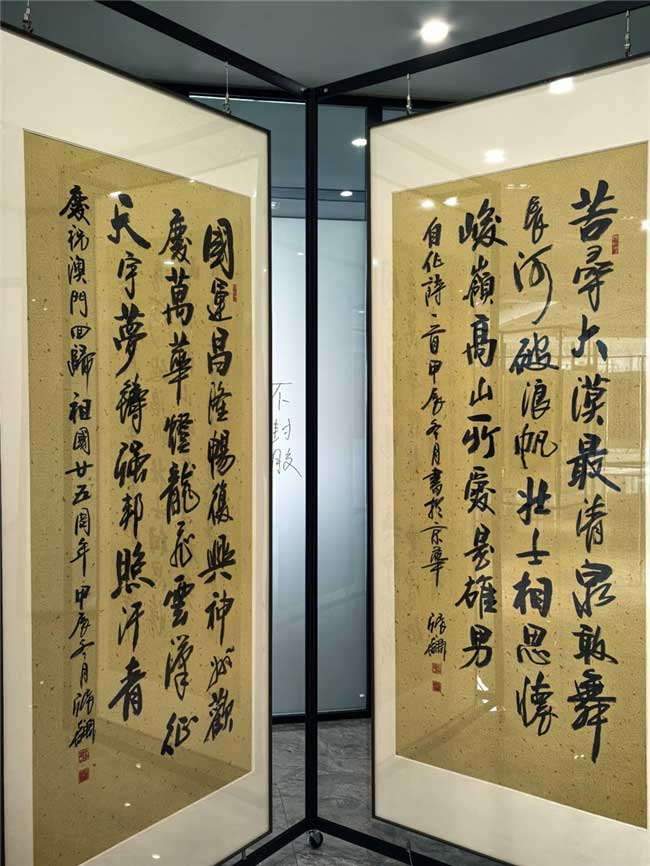 苦尋大漠最清泉敢舞
長河破浪帆壯士相思懷
峻嶺高山所愛是雄男
自作詩二首甲辰冬月書於京華
不封胶
國運昌隆暢復興神州歡
慶萬華燈龍飛雲漢征
天宇夢鑄强邦照汗青
慶祝澳門回歸祖國廿五周年甲辰冬月